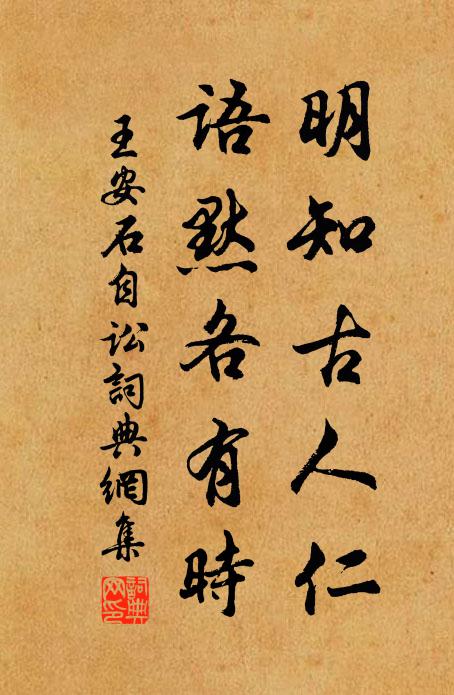 明知古人仁
語默各有時
王安石自訟詞典網集
詞典
网印